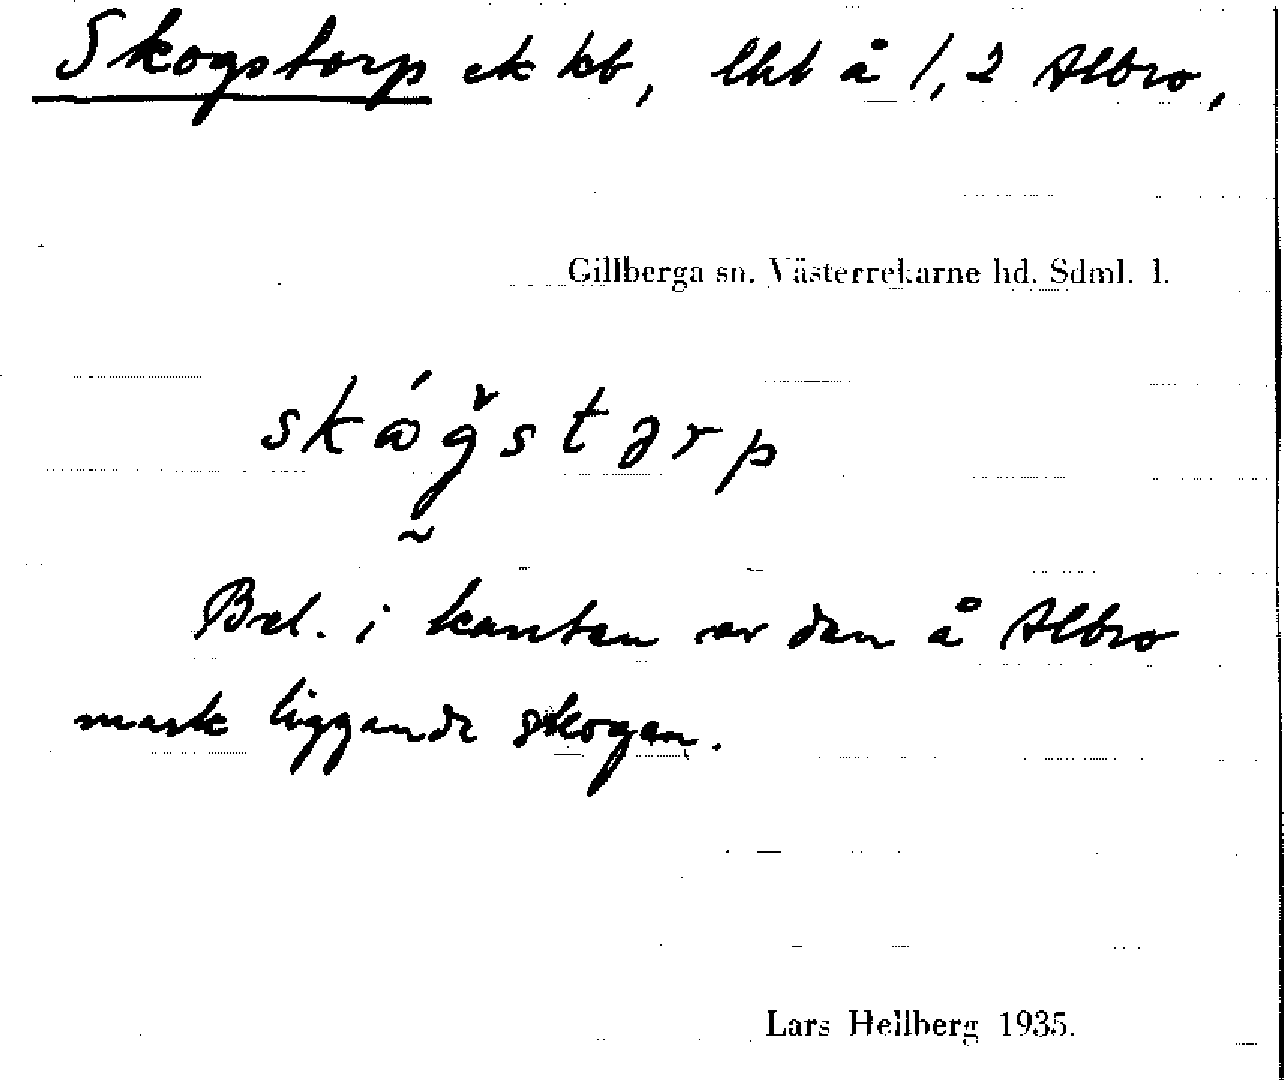 Skogstorp ek kb, lht å 1,2 Albro,
Gillberga sn. Västerrekarne hd. Sdml. l.
skǿgstərp
Bel. i kanten av den å Albro
mark liggande skogen.
Lars Hellberg 1935.